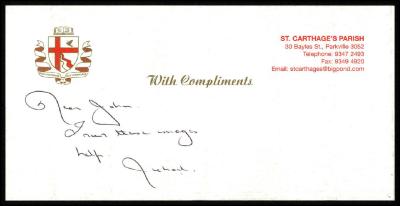 ST. CARTHAGE'S PARISH
30 Bayles St., Parkville 3052
Telephone: 9347 2493
Fax: 9349 4920
Email: stcarthages@bigpond.com
With Compliments
Dear John.
I trust these images
help.